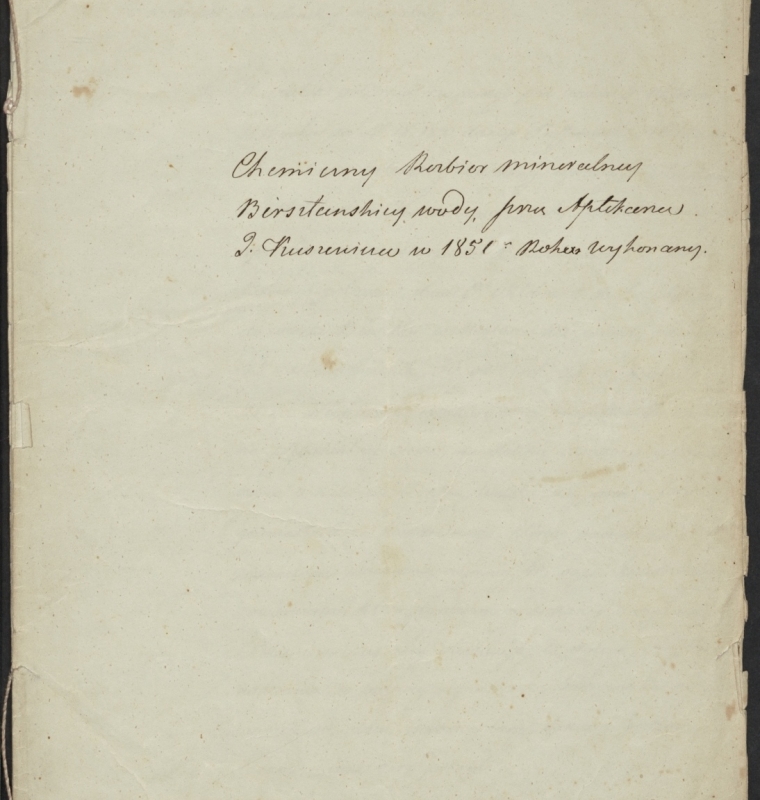 Chemiczny Rozbior mineralney
Birsztanskiey wody, przez Aptekarza
w 1851 r Roku wykonany.